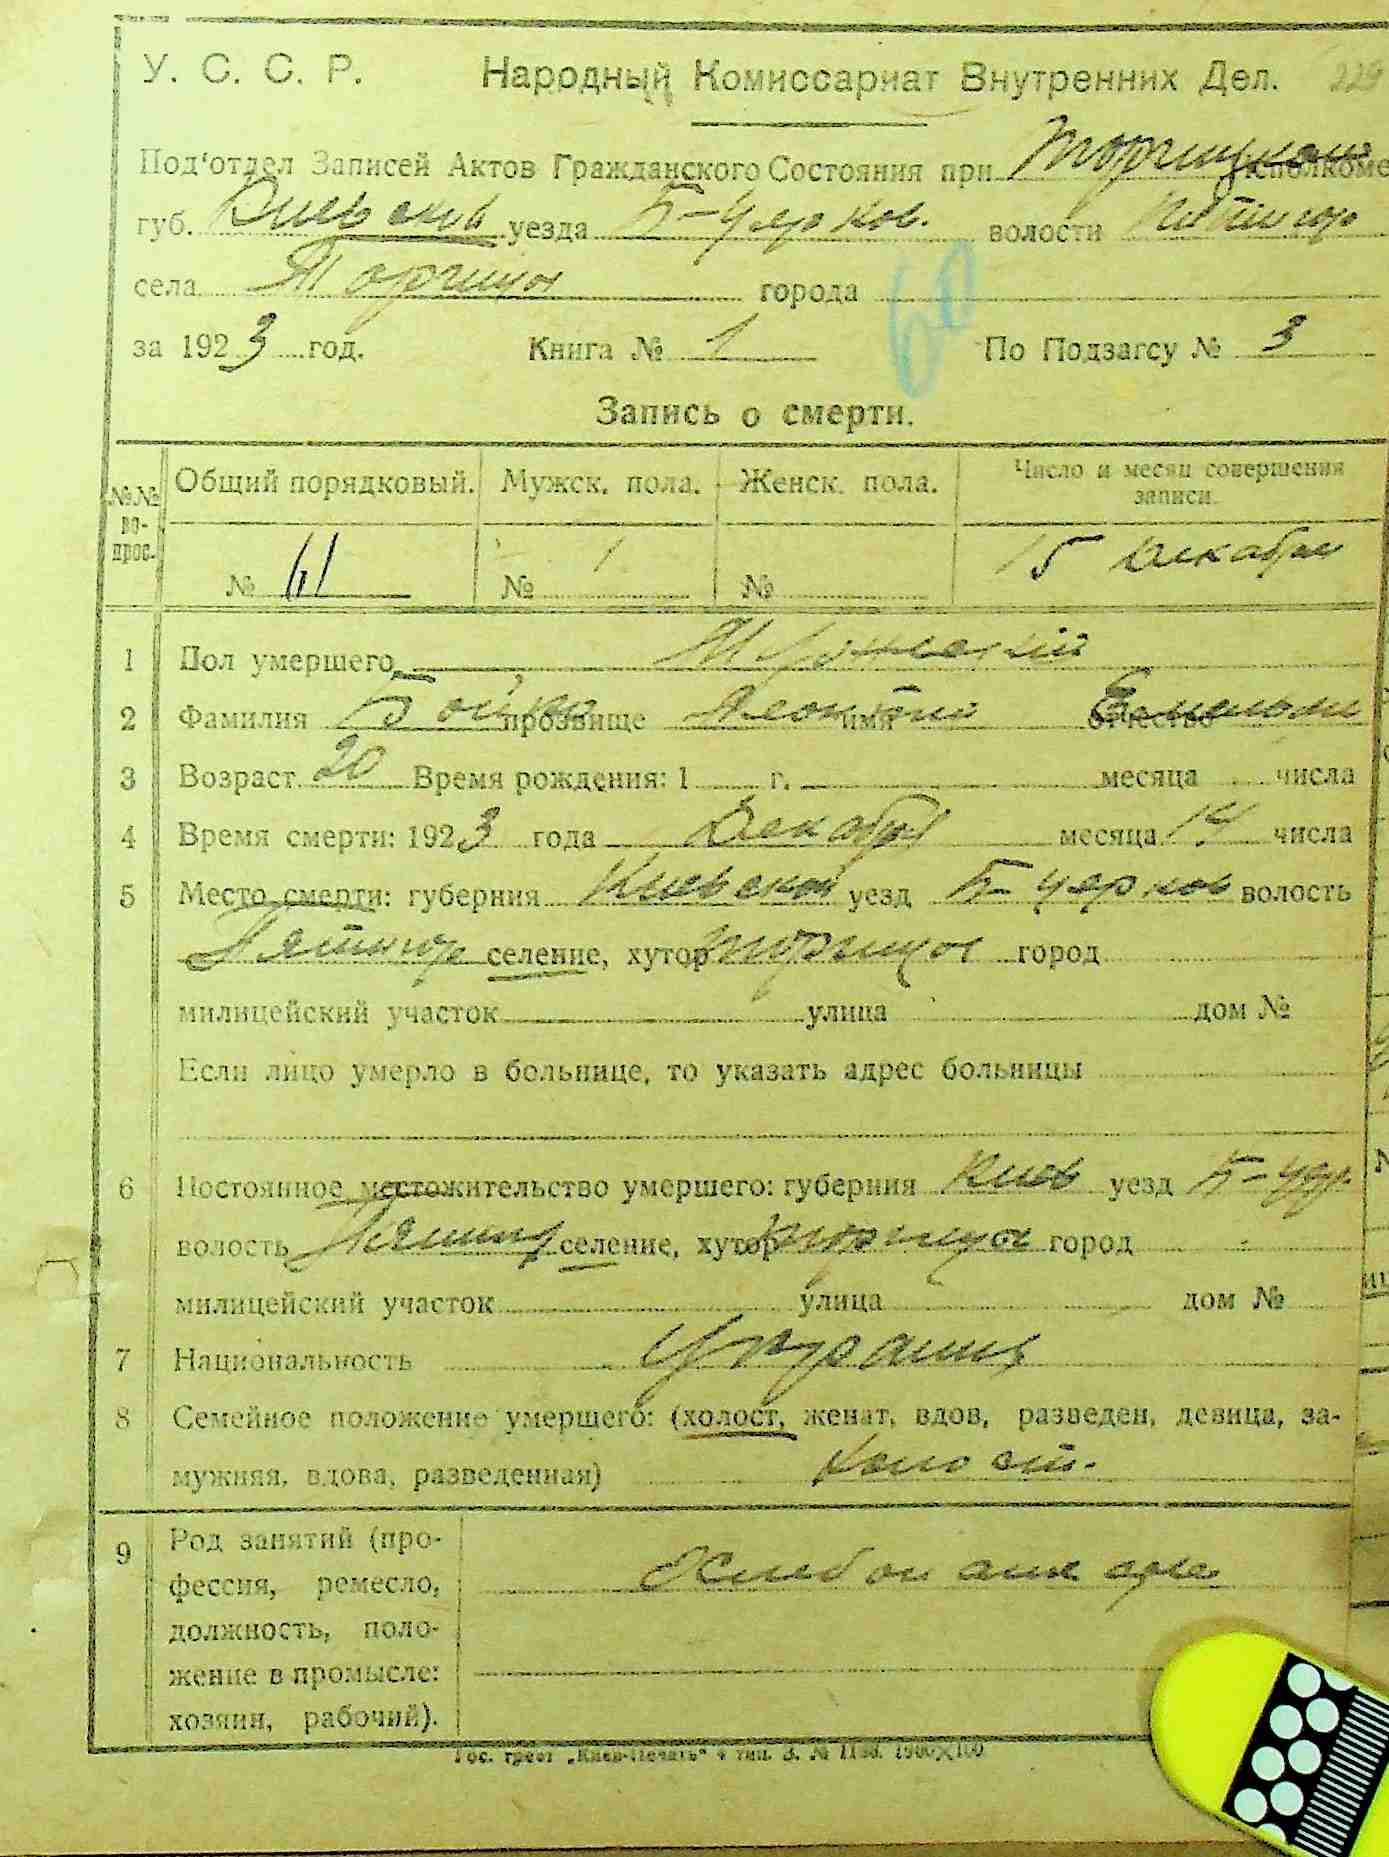 У. С. С. Р. Народный Комиссариат Внутренних Дел. 229
Под'отдел Записей Актов Гражданского Состояния при Торчицком исполкоме
губ. Киевской уезда Б-Церков. волости Пятигор
села Торчица города
60
за 1923 год. Книга № 1 По Подзагсу № 3
Запись о смерти.
№№ вопрос. Общий порядковый. Мужск. пола. Женск. пола. Число и месяц совершения записи.
№ 61 № 1 № 15 Декабря
1 Пол умершего Мужеский
2 Фамилия Бойко прозвище Леонтий имя отчество
3 Возраст 20 Время рождения: 1 г. месяца числа
4 Время смерти: 1923 года Декабря месяца 14 числа
5 Место смерти: губерния Киевской уезд Б-Церков волость
Пятигор селение, хутор Торчица город
милицейский участок улица дом №
Если лицо умерло в больнице, то указать адрес больницы
6 Постоянное местожительство умершего: губерния Киев уезд Б-Цер.
волость Пятиг селение, хутор Торчица город
милицейский участок улица дом №
7 Национальность
8 Семейное положение умершего: (холост, женат, вдов, разведен, девица, за-
мужняя, вдова, разведенная) холост.
9 Род занятий (про-
фессия, ремесло,
должность, поло-
жение в промысле:
хозяин, рабочий).
Гос. трест „Киев-Печать" 4 тип. З. №